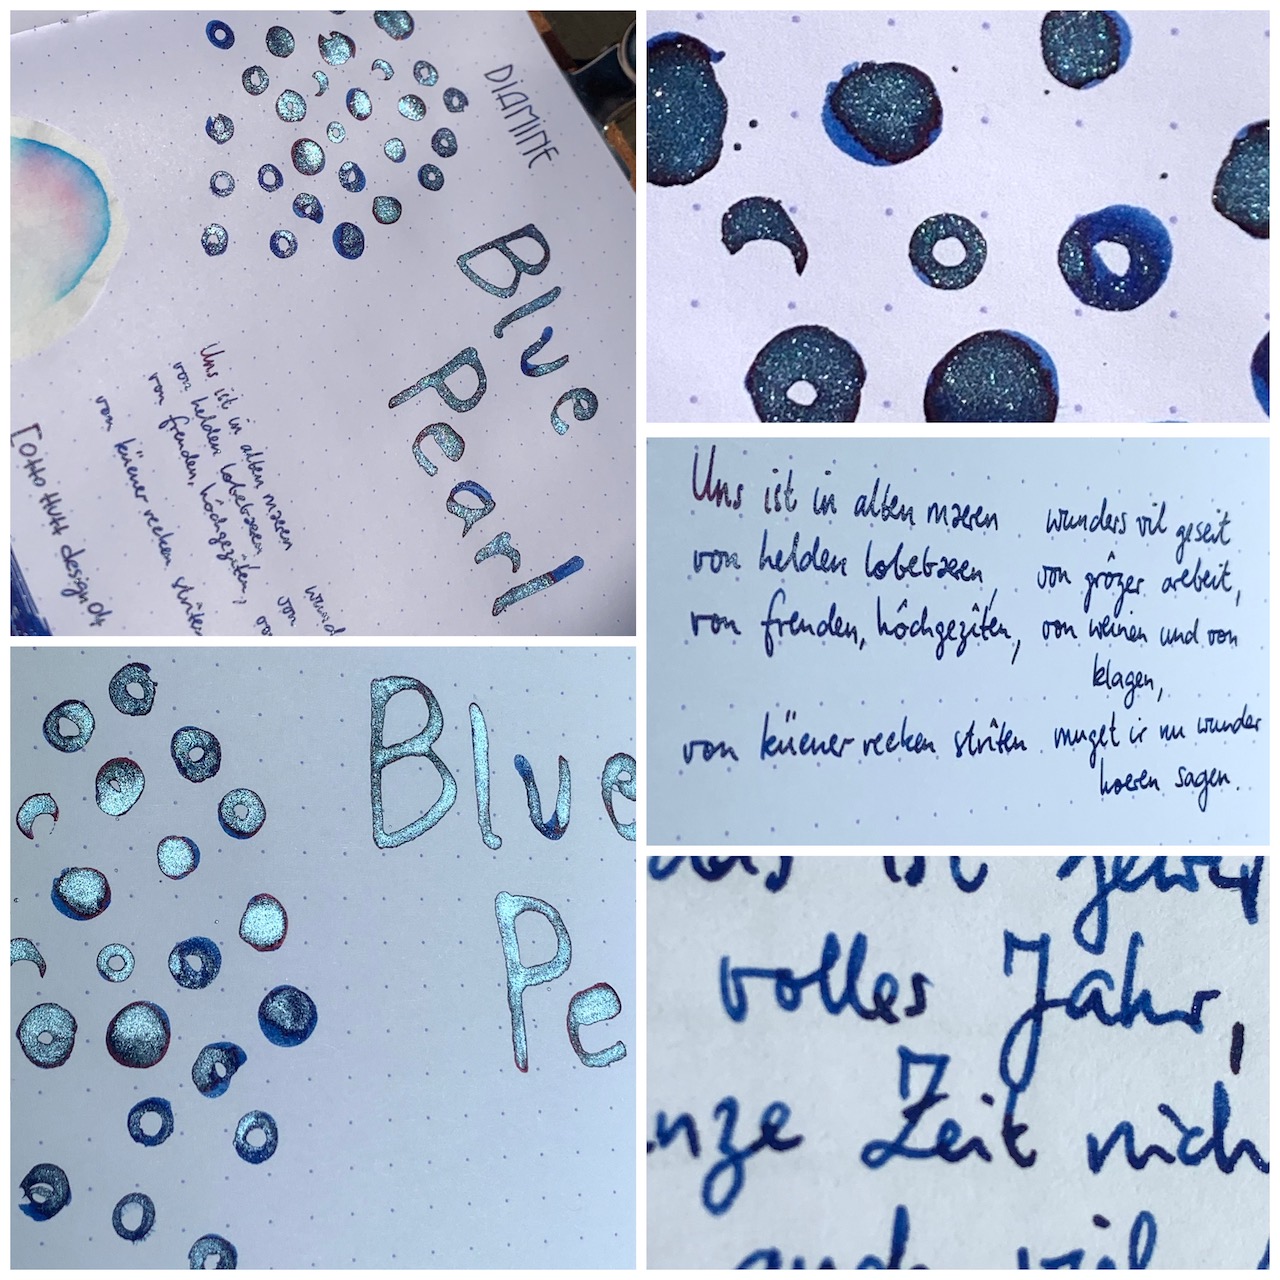 DIAMINE
Blue
Pearl
Uns ist in alten mæren
von helden lobebæren
von freuden, hôchgezîten,
von küener recken strîten
[Otto Hutt design04
Uns ist in alten mæren wunders vil geseit
von helden lobebæren, von grôzer arebeit,
von freuden, hôchgezîten, von weinen und von
klagen,
von küener recken strîten muget ir nu wunder
hœren sagen.
Blue
Pe
ist
volles Jahr,
Zeit